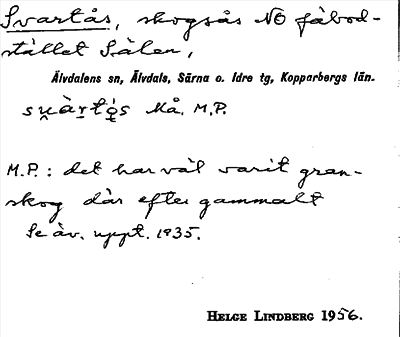 Svartås, skogsås NO fäbod-
stället Sälen,
Älvdalens sn, Älvdals, Särna o. Idre tg, Kopparbergs län.
Må. M.P.
M.P.: det har väl varit gran-
skog där efter gammalt
Se äv. uppt. 1935.
HELGE LINDBERG 1956.